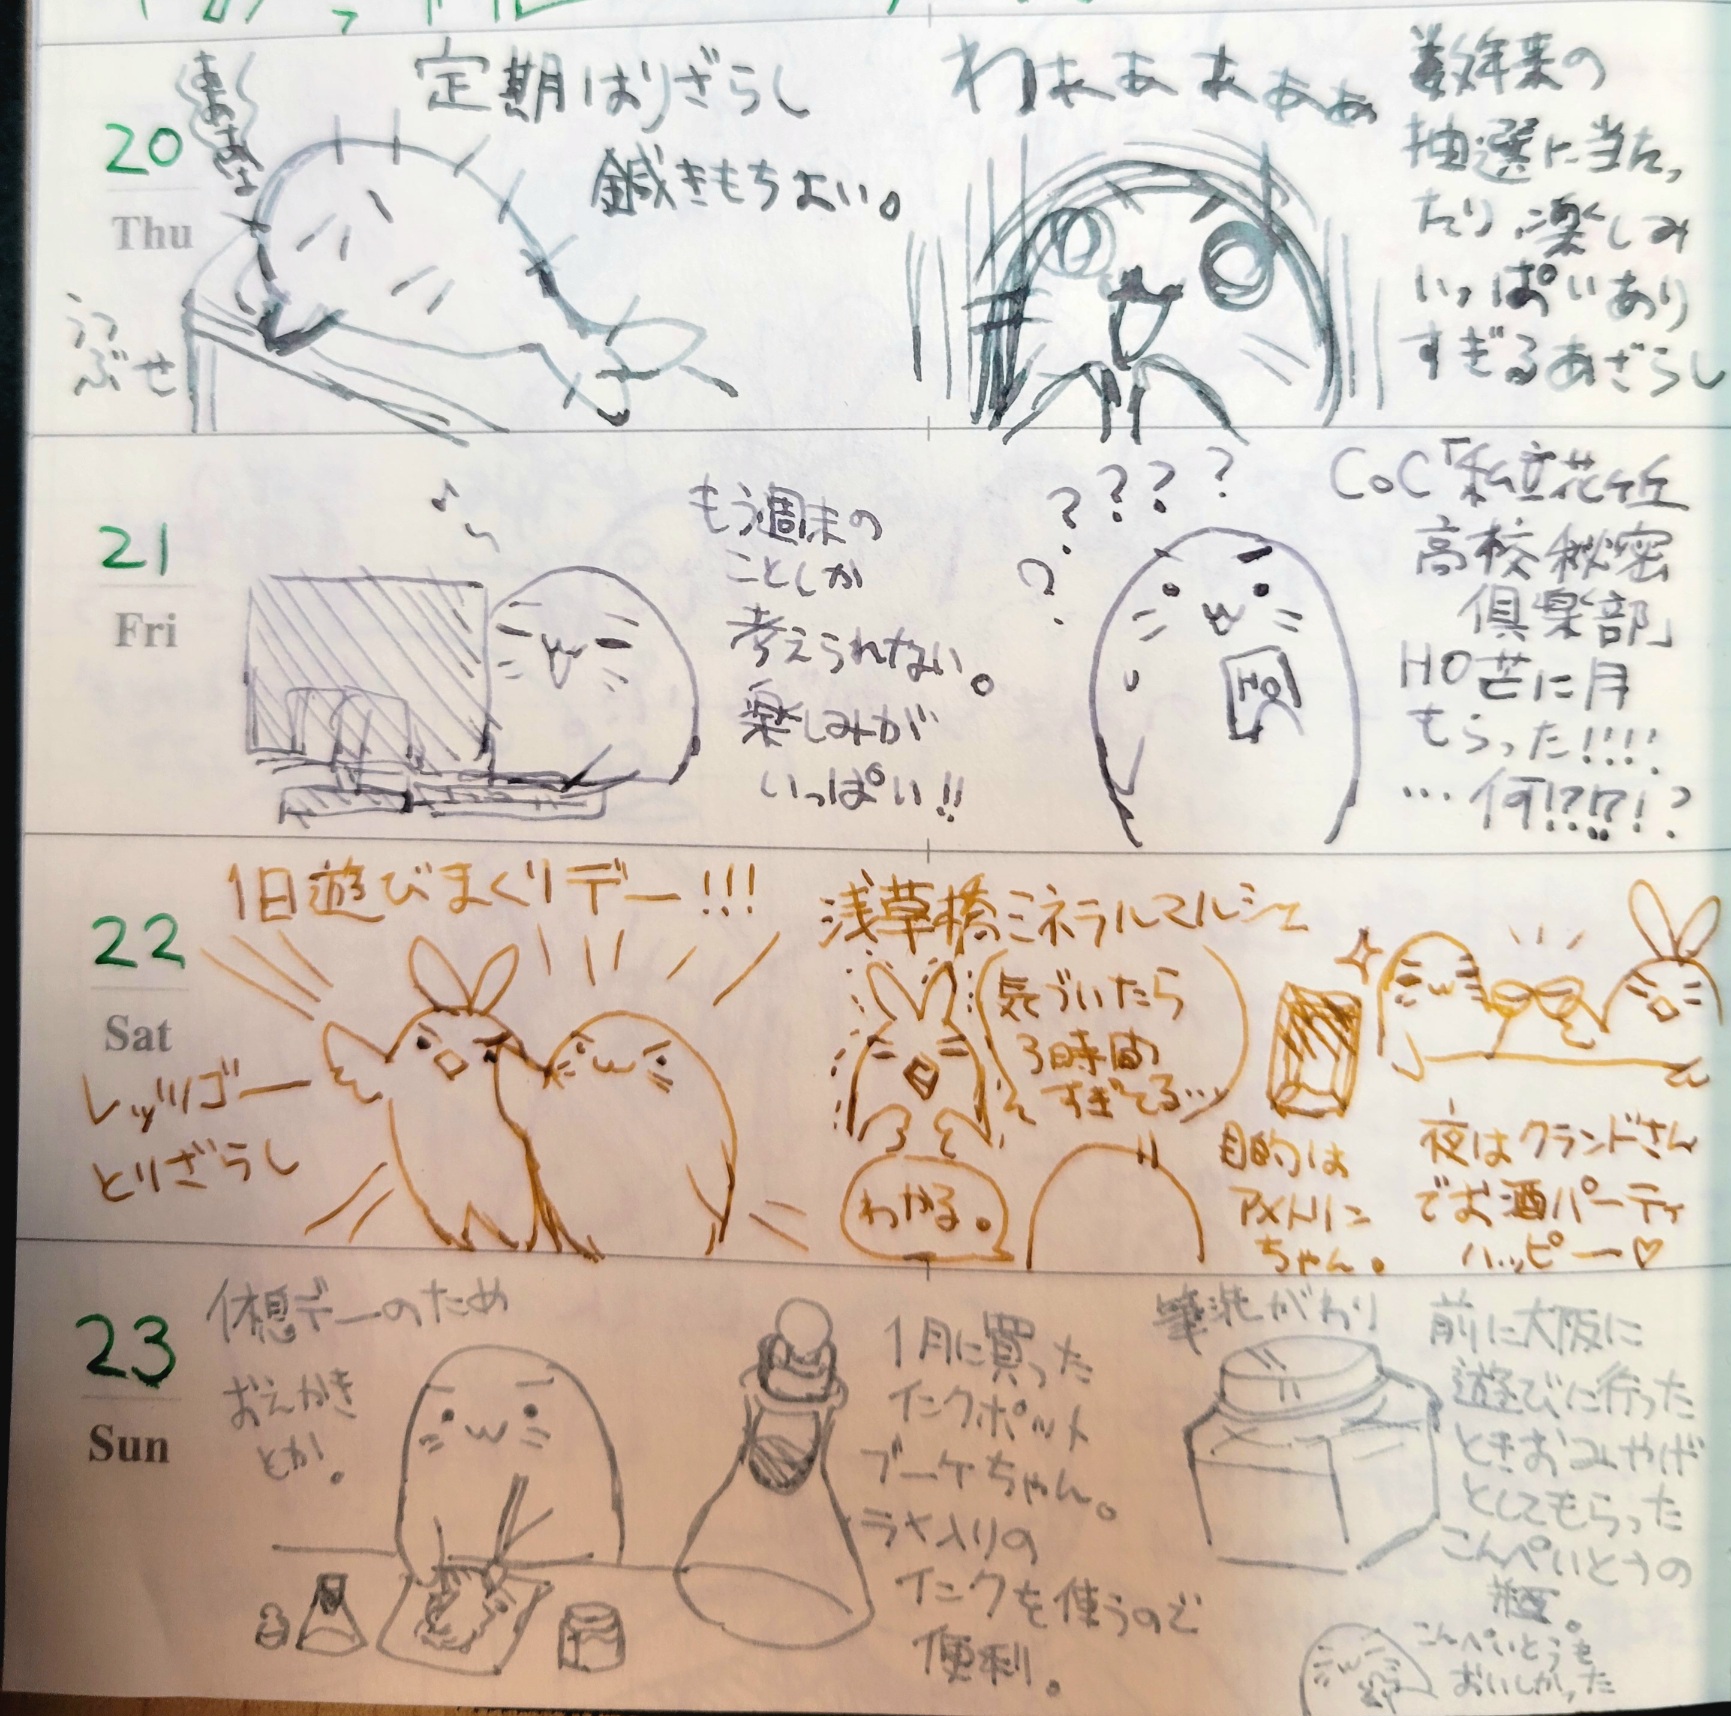 20
Thu
定期はりざらし
鍼きもちよい。
うつ
ぶせ
わぁぁぁぁぁ
数年来の
抽選に当たっ
たり、楽しみ
いっぱいあり
すぎるあざらし
21
Fri
もう週末の
ことしか
考えられない。
楽しみが
いっぱい!!
? ? ? ? ?
CoC「私立花ヶ丘
高校秘密
倶楽部」
HO芒に月
もらった!!!!
…何!?!?!?
HO
22
Sat
1日遊びまくりデー!!!
レッツゴー
とりざらし
浅草橋ミネラルマルシェ
気づいたら
3時間
すぎてる…
わかる。
目的は
アメトリン
ちゃん。
夜はクランドさん
でお酒パーティ
ハッピー♡
23
Sun
休憩デーのため
おえかき
とか。
1月に買った
インクポット
ブーケちゃん。
ラメ入りの
インクを使うので
便利。
筆洗がわり
前に大阪に
遊びに行った
ときおみやげ
としてもらった
こんぺいとうの
瓶。
こんぺいとうも
おいしかった